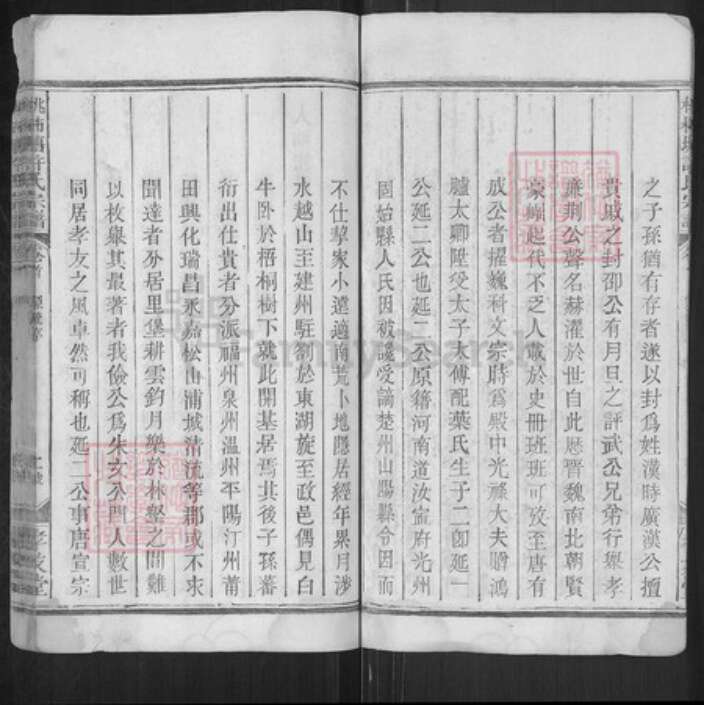 之子孫猶有存者遂以封爲姓漢時廣漢公擅
貴戚之封邵公有月旦之評武公兄弟行舉孝
廉荆公聲名赫濯於世自此歴晉魏南北朝賢
豪崛起代不乏人載於史冊班班可攷至唐有
成公者擢巍科文宗時爲殿中光祿大夫贈鴻
臚太卿陞受太子太傅配葉氏生子二卽延一
公延二公也延二公原籍河南道汝寧府光州
固始縣人氏因被讒受謫楚州山陽縣令因而
不仕挈家小遠適南荒卜地隱居經年累月涉
水越山至建州駐劄於東湖旋至政邑偶見白
牛卧於梧桐樹下就此開基居焉其後子孫蕃
衍出仕貴者分派福州泉州温州平陽汀州莆
田興化瑞昌永嘉松山浦城清流等郡或不求
聞達者分居里堡耕雲釣月樂於林壑之間難
以枚舉其最著者我儉公爲朱文公門人數世
同居孝友之風卓然可稱也延二公事唐宣宗
許氏宗譜
卷首